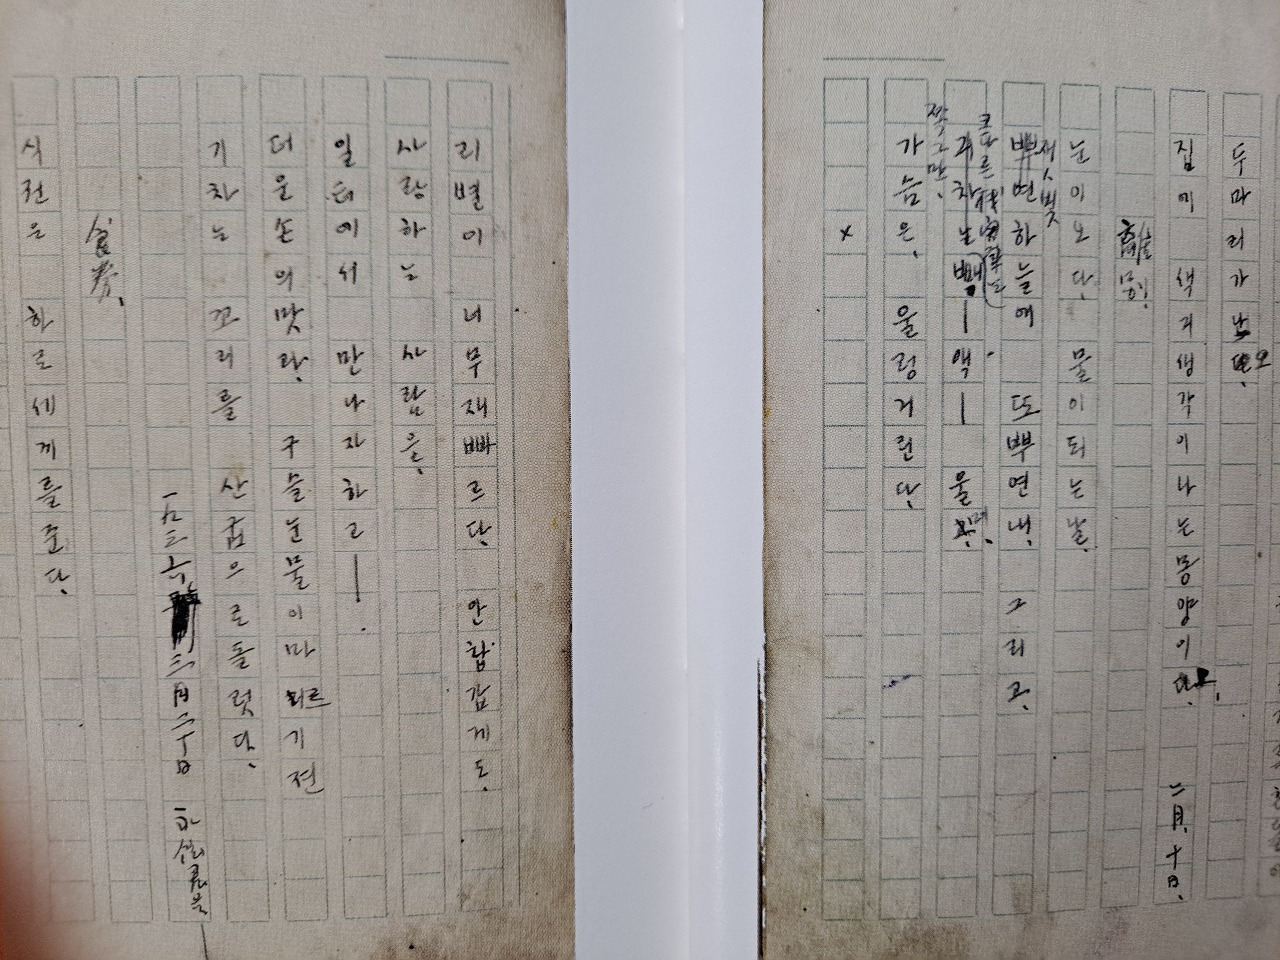 두마리가 나오.
집에 색기생각이나는몽양이오.　二月、十日。
離別
눈이오다、　물이되는날、
잿빛
뿌면하늘에　또뿌면내、　그리고、
커다른機関車는
기차는 빽—액—　울며、
쪼그만、
가슴은、　울렁거린다、
×
리별이 너무재빠르다、　안탑갑게도、
사랑하는 사람을、
일터에서 만나자하고—.
더운손의맛과、　구슬눈물이마르기전
기차는 꼬리를　산굽으로돌렷다、
一九三六 三月二十日　永鉉君을—
食券、
식권은　하로세끼를준다、